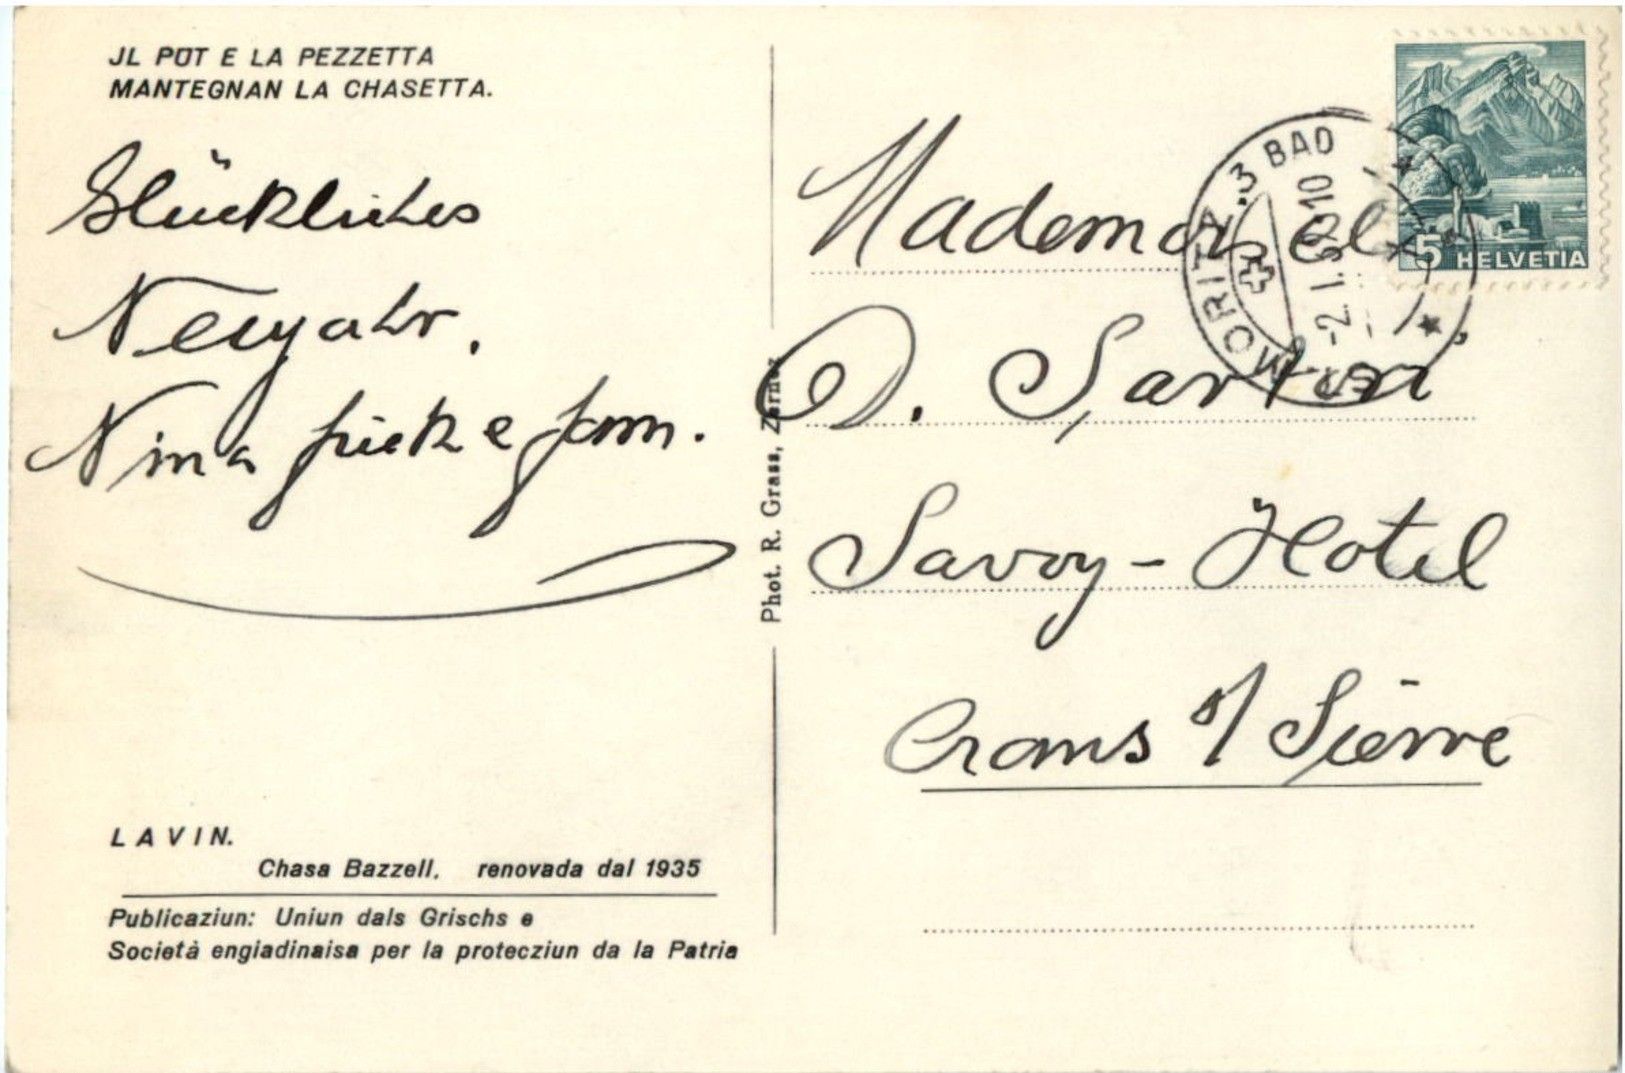 JL PÜT E LA PEZZETTA
MANTEGNAN LA CHASETTA.
Glückliches
Neujahr.
Nina fam.
LAVIN.
Chasa Bazzell. renovada dal 1935
Publicaziun: Uniun dals Grischs e
Società engiadinaisa per la protecziun da la Patria
Phot. R. Grass, Zernez
ST. MORITZ. 3 BAD
-2.I. 10
5 HELVETIA
Mademoisel
O. Sartori
Savoy-Hotel
Crans s/ Sierre